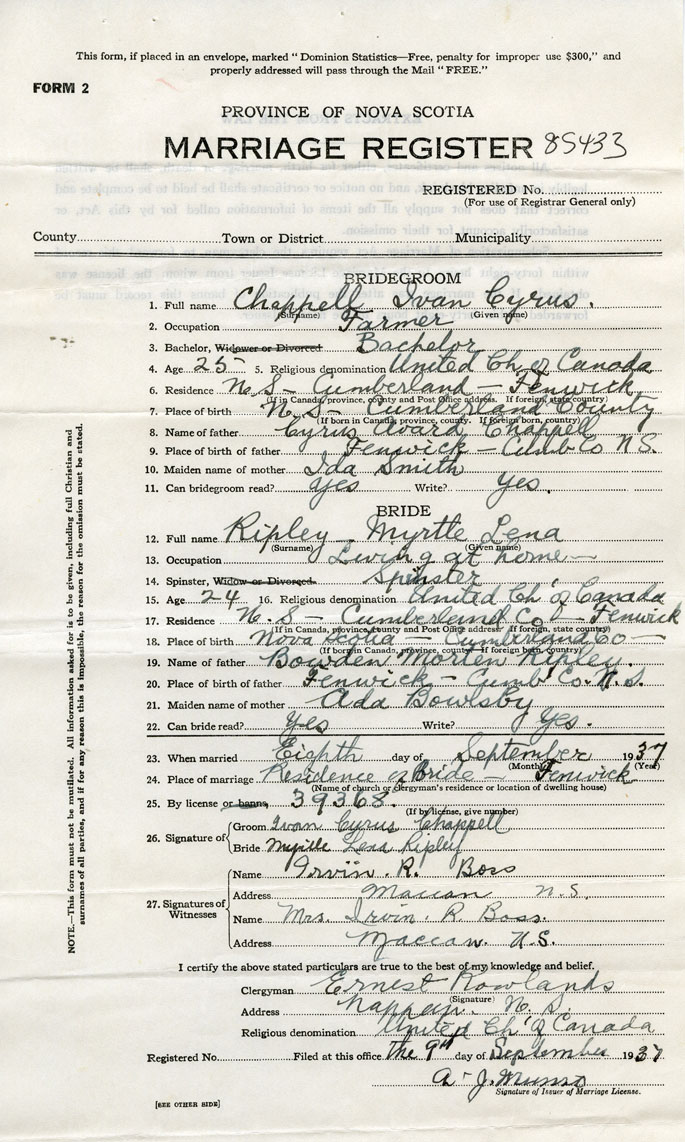 This form, if placed in an envelope, marked "Dominion Statistics—Free, penalty for improper use $300," and
properly addressed will pass through the Mail "FREE."
FORM 2
PROVINCE OF NOVA SCOTIA
MARRIAGE REGISTER 85433
REGISTERED No.
(For use of Registrar General only)
County Town or District Municipality
BRIDEGROOM
1. Full name Chappell Ivan Cyrus.
(Surname) (Given name)
2. Occupation Farmer
3. Bachelor, Widower or Divorced Bachelor
4. Age 25 5. Religious denomination United Ch. of Canada
6. Residence N.S — Cumberland — Fenwick
(If in Canada, province, county and Post Office address. If foreign, state country)
7. Place of birth N.S — Cumberland County
(If born in Canada, province, county. If foreign born, country)
8. Name of father Cyrus Avard Chappell
9. Place of birth of father Fenwick — Cumb Co N.S.
10. Maiden name of mother Ida Smith
11. Can bridegroom read? yes Write? Yes.
BRIDE
12. Full name Ripley Myrtle Lena
(Surname) (Given name)
13. Occupation Living at home —
14. Spinster, Widow or Divorced. Spinster
15. Age 24 16. Religious denomination United Ch' of Canada
17. Residence N.S — Cumberland Co — Fenwick
(If in Canada, province, county and Post Office address If foreign, state country)
18. Place of birth Nova Scotia — Cumberland Co —
(If born in Canada, province, county If foreign born, country)
19. Name of father Bowden Morten Ripley.
20. Place of birth of father Fenwick — Cumb' Co. N.S.
21. Maiden name of mother Ada Bowlsby
22. Can bride read? Yes Write? Yes.
23. When married Eighth day of September 1937
(Month) (Year)
24. Place of marriage Residence of Bride — Fenwick
(Name of church or clergyman's residence or location of dwelling house)
25. By license or banns, 39368.
(If by license, give number)
26. Signature of
Groom Ivan Cyrus Chappell
Bride Myrtle Lena Ripley
27. Signatures of Witnesses
Name Irvin. R. Boss
Address Maccan N.S.
Name Mrs. Irvin. R Boss.
Address Maccan. N.S.
I certify the above stated particulars are true to the best of my knowledge and belief.
Clergyman Ernest Rowlands
(Signature)
Address Nappan. N.S.
Religious denomination United Ch' of Canada
Registered No. Filed at this office the 9th day of September 1937
A. J. Munro
Signature of Issuer of Marriage License.
[SEE OTHER SIDE]
NOTE.—This form must not be mutilated. All information asked for is to be given, including full Christian and
surnames of all parties, and if for any reason this is impossible, the reason for the omission must be stated.